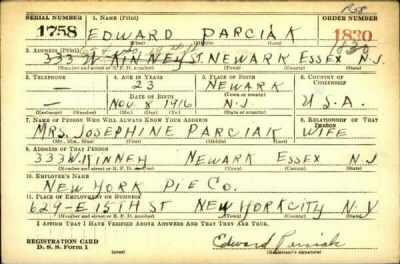 SERIAL NUMBER 1. NAME (Print) ORDER NUMBER
1758 EDWARD PARCIAK 1830
(First) (Middle) (Last)
2. ADDRESS (Print)
333 W. KINNEY ST. NEWARK ESSEX N.J.
(Number and street or R. F. D. number) (Town) (County) (State)
3. TELEPHONE 4. AGE IN YEARS 5. PLACE OF BIRTH 6. COUNTRY OF CITIZENSHIP
— 23 NEWARK
DATE OF BIRTH (Town or county)
— NOV. 8 1916 N.J. U.S.A.
(Exchange) (Number) (Mo.) (Day) (Yr.) (State or country)
7. NAME OF PERSON WHO WILL ALWAYS KNOW YOUR ADDRESS 8. RELATIONSHIP OF THAT PERSON
MRS. JOSEPHINE PARCIAK WIFE
(Mr., Mrs., Miss) (First) (Middle) (Last)
9. ADDRESS OF THAT PERSON
333 W. KINNEY NEWARK ESSEX N.J
(Number and street or R. F. D. number) (Town) (County) (State)
10. EMPLOYER'S NAME
NEW YORK PIE CO.
11. PLACE OF EMPLOYMENT OR BUSINESS
629-E 15TH ST NEW YORK CITY N.Y
(Number and street or R. F. D. number) (Town) (County) (State)
I AFFIRM THAT I HAVE VERIFIED ABOVE ANSWERS AND THAT THEY ARE TRUE.
REGISTRATION CARD
D. S. S. Form 1 (over) Edward Parciak
(Registrant's signature)